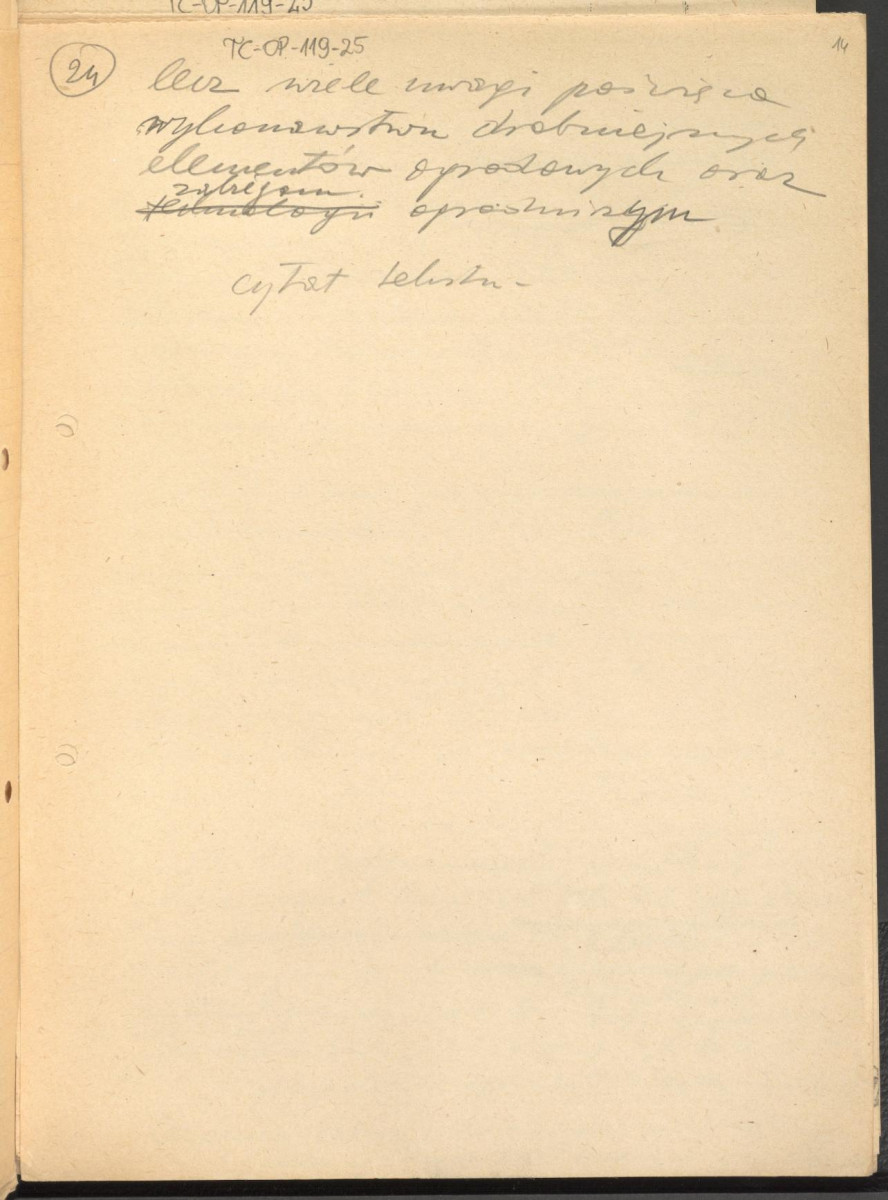 TC-OP-119-25
TC-OP-119-25
14
24
lecz wiele uwagi poświęca
wykonawstwu drobniejszych
elementów ogrodowych oraz
zabiegom
technologii ogrodniczym
cytat tekstu -